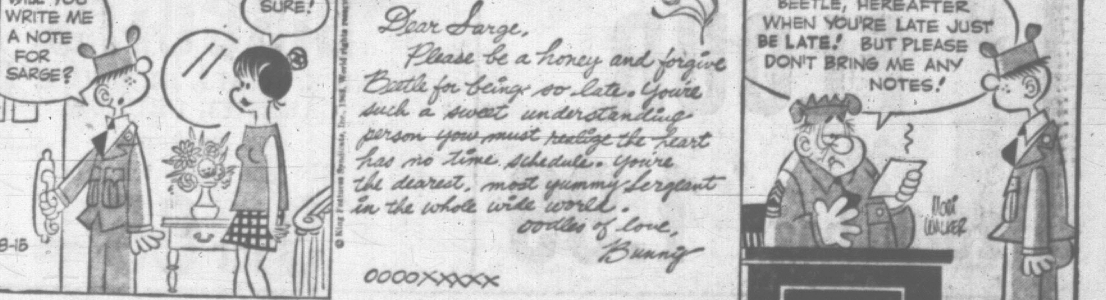 WRITE ME
A NOTE
FOR
SARGE?
SURE!
8-15
© King Features Syndicate, Inc., World rights
Dear Sarge,
Please be a honey and forgive
Beetle for being so late. You're
such a sweet understanding
person you must realize the heart
has no time schedule. You're
the dearest, most yummy Sergeant
in the whole wide world.
Oodles of love,
Bunny
OOOOXXXX
BEETLE, HEREAFTER
WHEN YOU'RE LATE JUST
BE LATE! BUT PLEASE
DON'T BRING ME ANY
NOTES!
MORT
WALKER